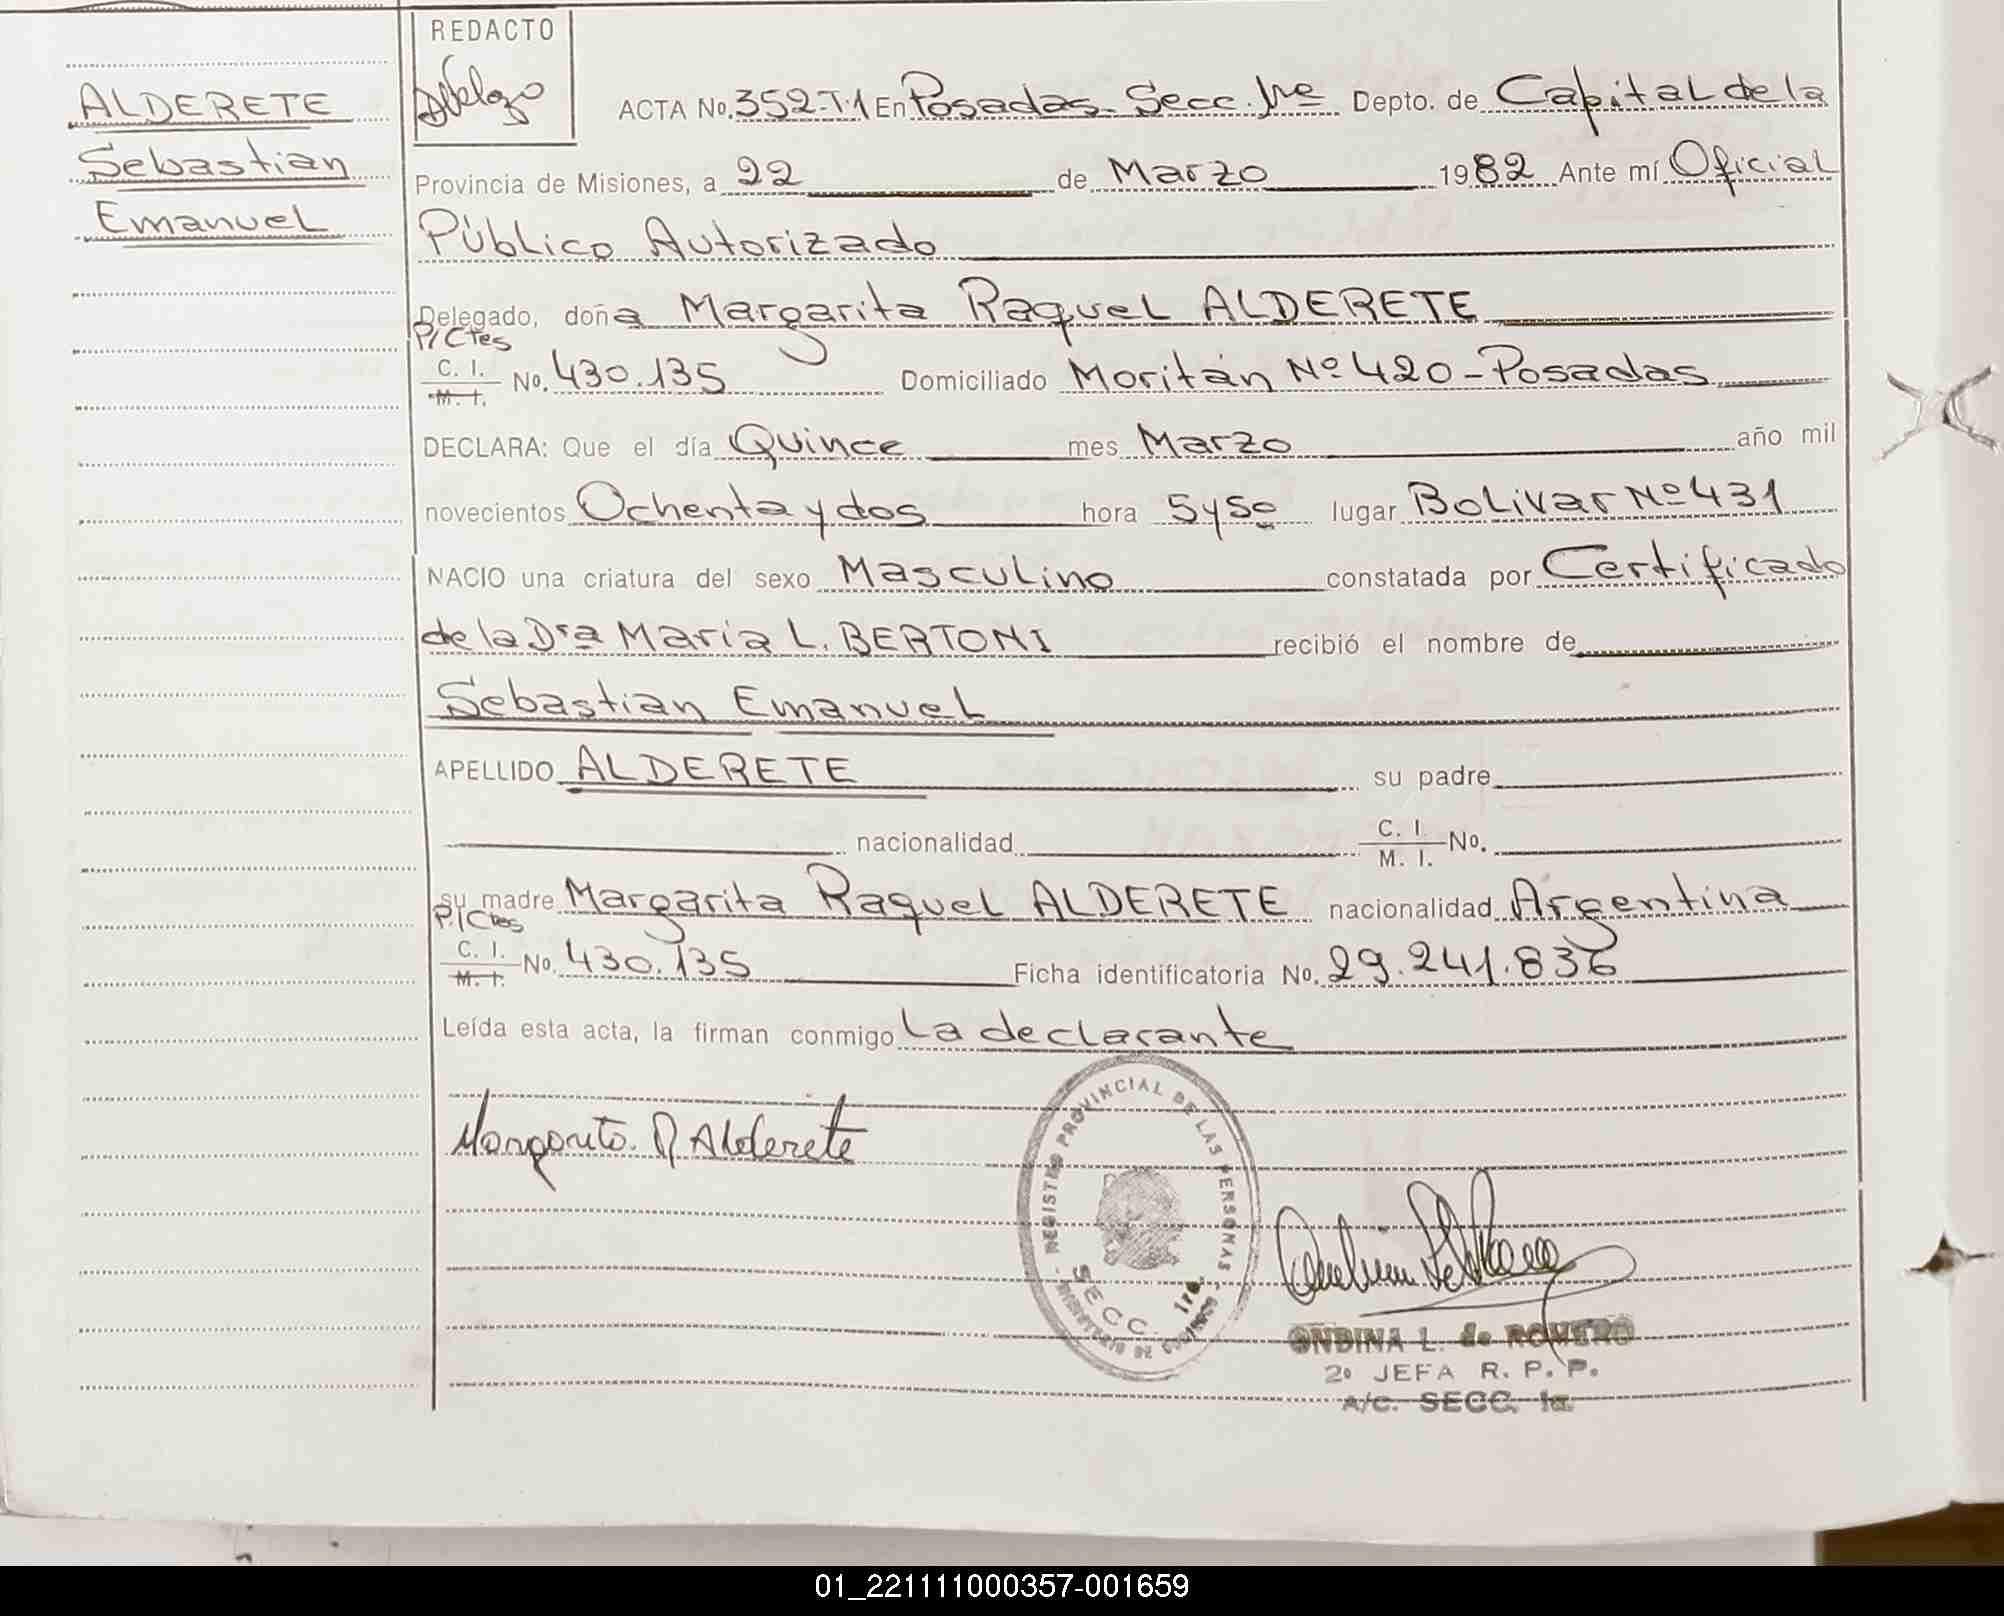 ALDERETE
Sebastian
Emanuel
REDACTO
ACTA No. 352-T·1 En Posadas- Secc. 1ra Depto. de Capital de la
Provincia de Misiones, a 22 de Marzo 1982 Ante mí Oficial
Público Autorizado
Delegado, doña Margarita Raquel ALDERETE
P/Ctes
C. I.
M. I. No. 430.135 Domiciliado Moritán Nº 420 - Posadas
DECLARA: Que el día Quince mes Marzo año mil
novecientos Ochenta y dos hora 5 y 50 lugar Bolivar Nº 431
NACIO una criatura del sexo Masculino constatada por Certificado
de la Dra Maria L. BERTONI recibió el nombre de
Sebastian Emanuel
APELLIDO ALDERETE su padre
nacionalidad C. I.
M. I. No.
su madre Margarita Raquel ALDERETE nacionalidad Argentina
P/Ctes
C. I.
M. I. No. 430.135 Ficha identificatoria No. 29.241.836
Leída esta acta, la firman conmigo La declarante
Margarita R Alderete
REGISTRO PROVINCIAL DE LAS PERSONAS
SECC. 1ra
ONDINA L. de ROMERO
2º JEFA R. P. P.
A/C. SECC. 1a.
01_221111000357-001659